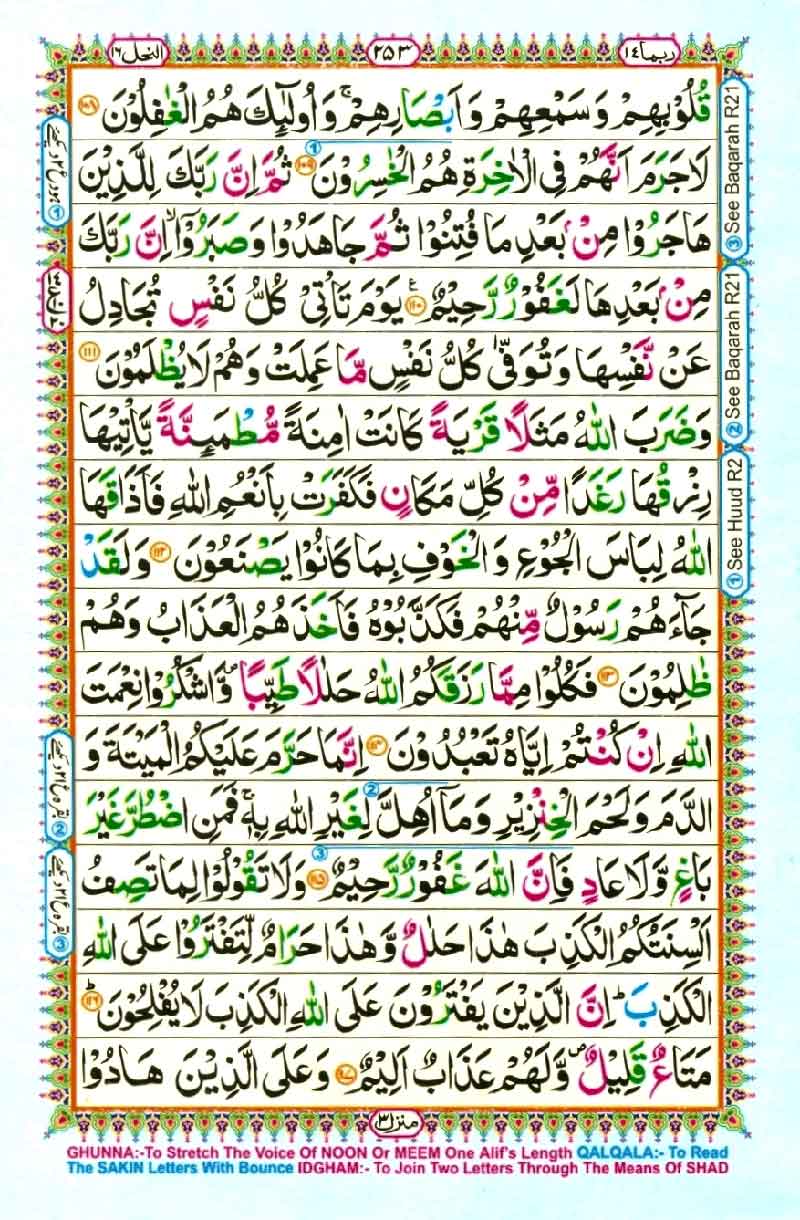 ربما ١٤
٢٥٣
النحل ١٦
قُلُوْبِهِمْ وَسَمْعِهِمْ وَاَبْصَارِهِمْ ۚ وَاُولٰٓئِكَ هُمُ الْغٰفِلُوْنَ ۝١٠٨
لَاجَرَمَ اَنَّهُمْ فِى الْاٰخِرَةِ هُمُ الْخٰسِرُوْنَ ۝١٠٩ ثُمَّ اِنَّ رَبَّكَ لِلَّذِيْنَ
هَاجَرُوْا مِنْۢ بَعْدِ مَا فُتِنُوْا ثُمَّ جَاهَدُوْا وَصَبَرُوْۤا ۙ اِنَّ رَبَّكَ
مِنْۢ بَعْدِهَا لَغَفُوْرٌ رَّحِيْمٌ ۝١١٠ ع يَوْمَ تَاْتِىْ كُلُّ نَفْسٍ تُجَادِلُ
عَنْ نَّفْسِهَا وَتُوَفّٰى كُلُّ نَفْسٍ مَّا عَمِلَتْ وَهُمْ لَا يُظْلَمُوْنَ ۝١١١
وَضَرَبَ اللّٰهُ مَثَلًا قَرْيَةً كَانَتْ اٰمِنَةً مُّطْمَئِنَّةً يَّاْتِيْهَا
رِزْقُهَا رَغَدًا مِّنْ كُلِّ مَكَانٍ فَكَفَرَتْ بِاَنْعُمِ اللّٰهِ فَاَذَاقَهَا
اللّٰهُ لِبَاسَ الْجُوْعِ وَالْخَوْفِ بِمَا كَانُوْا يَصْنَعُوْنَ ۝١١٢ وَلَقَدْ
جَآءَهُمْ رَسُوْلٌ مِّنْهُمْ فَكَذَّبُوْهُ فَاَخَذَهُمُ الْعَذَابُ وَهُمْ
ظٰلِمُوْنَ ۝١١٣ فَكُلُوْا مِمَّا رَزَقَكُمُ اللّٰهُ حَلٰلًا طَيِّبًا ۪ وَّاشْكُرُوْا نِعْمَتَ
اللّٰهِ اِنْ كُنْتُمْ اِيَّاهُ تَعْبُدُوْنَ ۝١١٤ اِنَّمَا حَرَّمَ عَلَيْكُمُ الْمَيْتَةَ وَ
الدَّمَ وَلَحْمَ الْخِنْزِيْرِ وَمَاۤ اُهِلَّ لِغَيْرِ اللّٰهِ بِهٖ ۚ فَمَنِ اضْطُرَّ غَيْرَ
بَاغٍ وَّلَا عَادٍ فَاِنَّ اللّٰهَ غَفُوْرٌ رَّحِيْمٌ ۝١١٥ وَلَا تَقُوْلُوْا لِمَا تَصِفُ
اَلْسِنَتُكُمُ الْكَذِبَ هٰذَا حَلٰلٌ وَّهٰذَا حَرَامٌ لِّتَفْتَرُوْا عَلَى اللّٰهِ
الْكَذِبَ ؕ اِنَّ الَّذِيْنَ يَفْتَرُوْنَ عَلَى اللّٰهِ الْكَذِبَ لَا يُفْلِحُوْنَ ۝١١٦ؕ
مَتَاعٌ قَلِيْلٌ ۪ وَّلَهُمْ عَذَابٌ اَلِيْمٌ ۝١١٧ وَعَلَى الَّذِيْنَ هَادُوْا
③ See Baqarah R21
② See Baqarah R21
① See Huud R2
منزل ٣
GHUNNA:-To Stretch The Voice Of NOON Or MEEM One Alif's Length QALQALA:- To Read
The SAKIN Letters With Bounce IDGHAM:- To Join Two Letters Through The Means Of SHAD